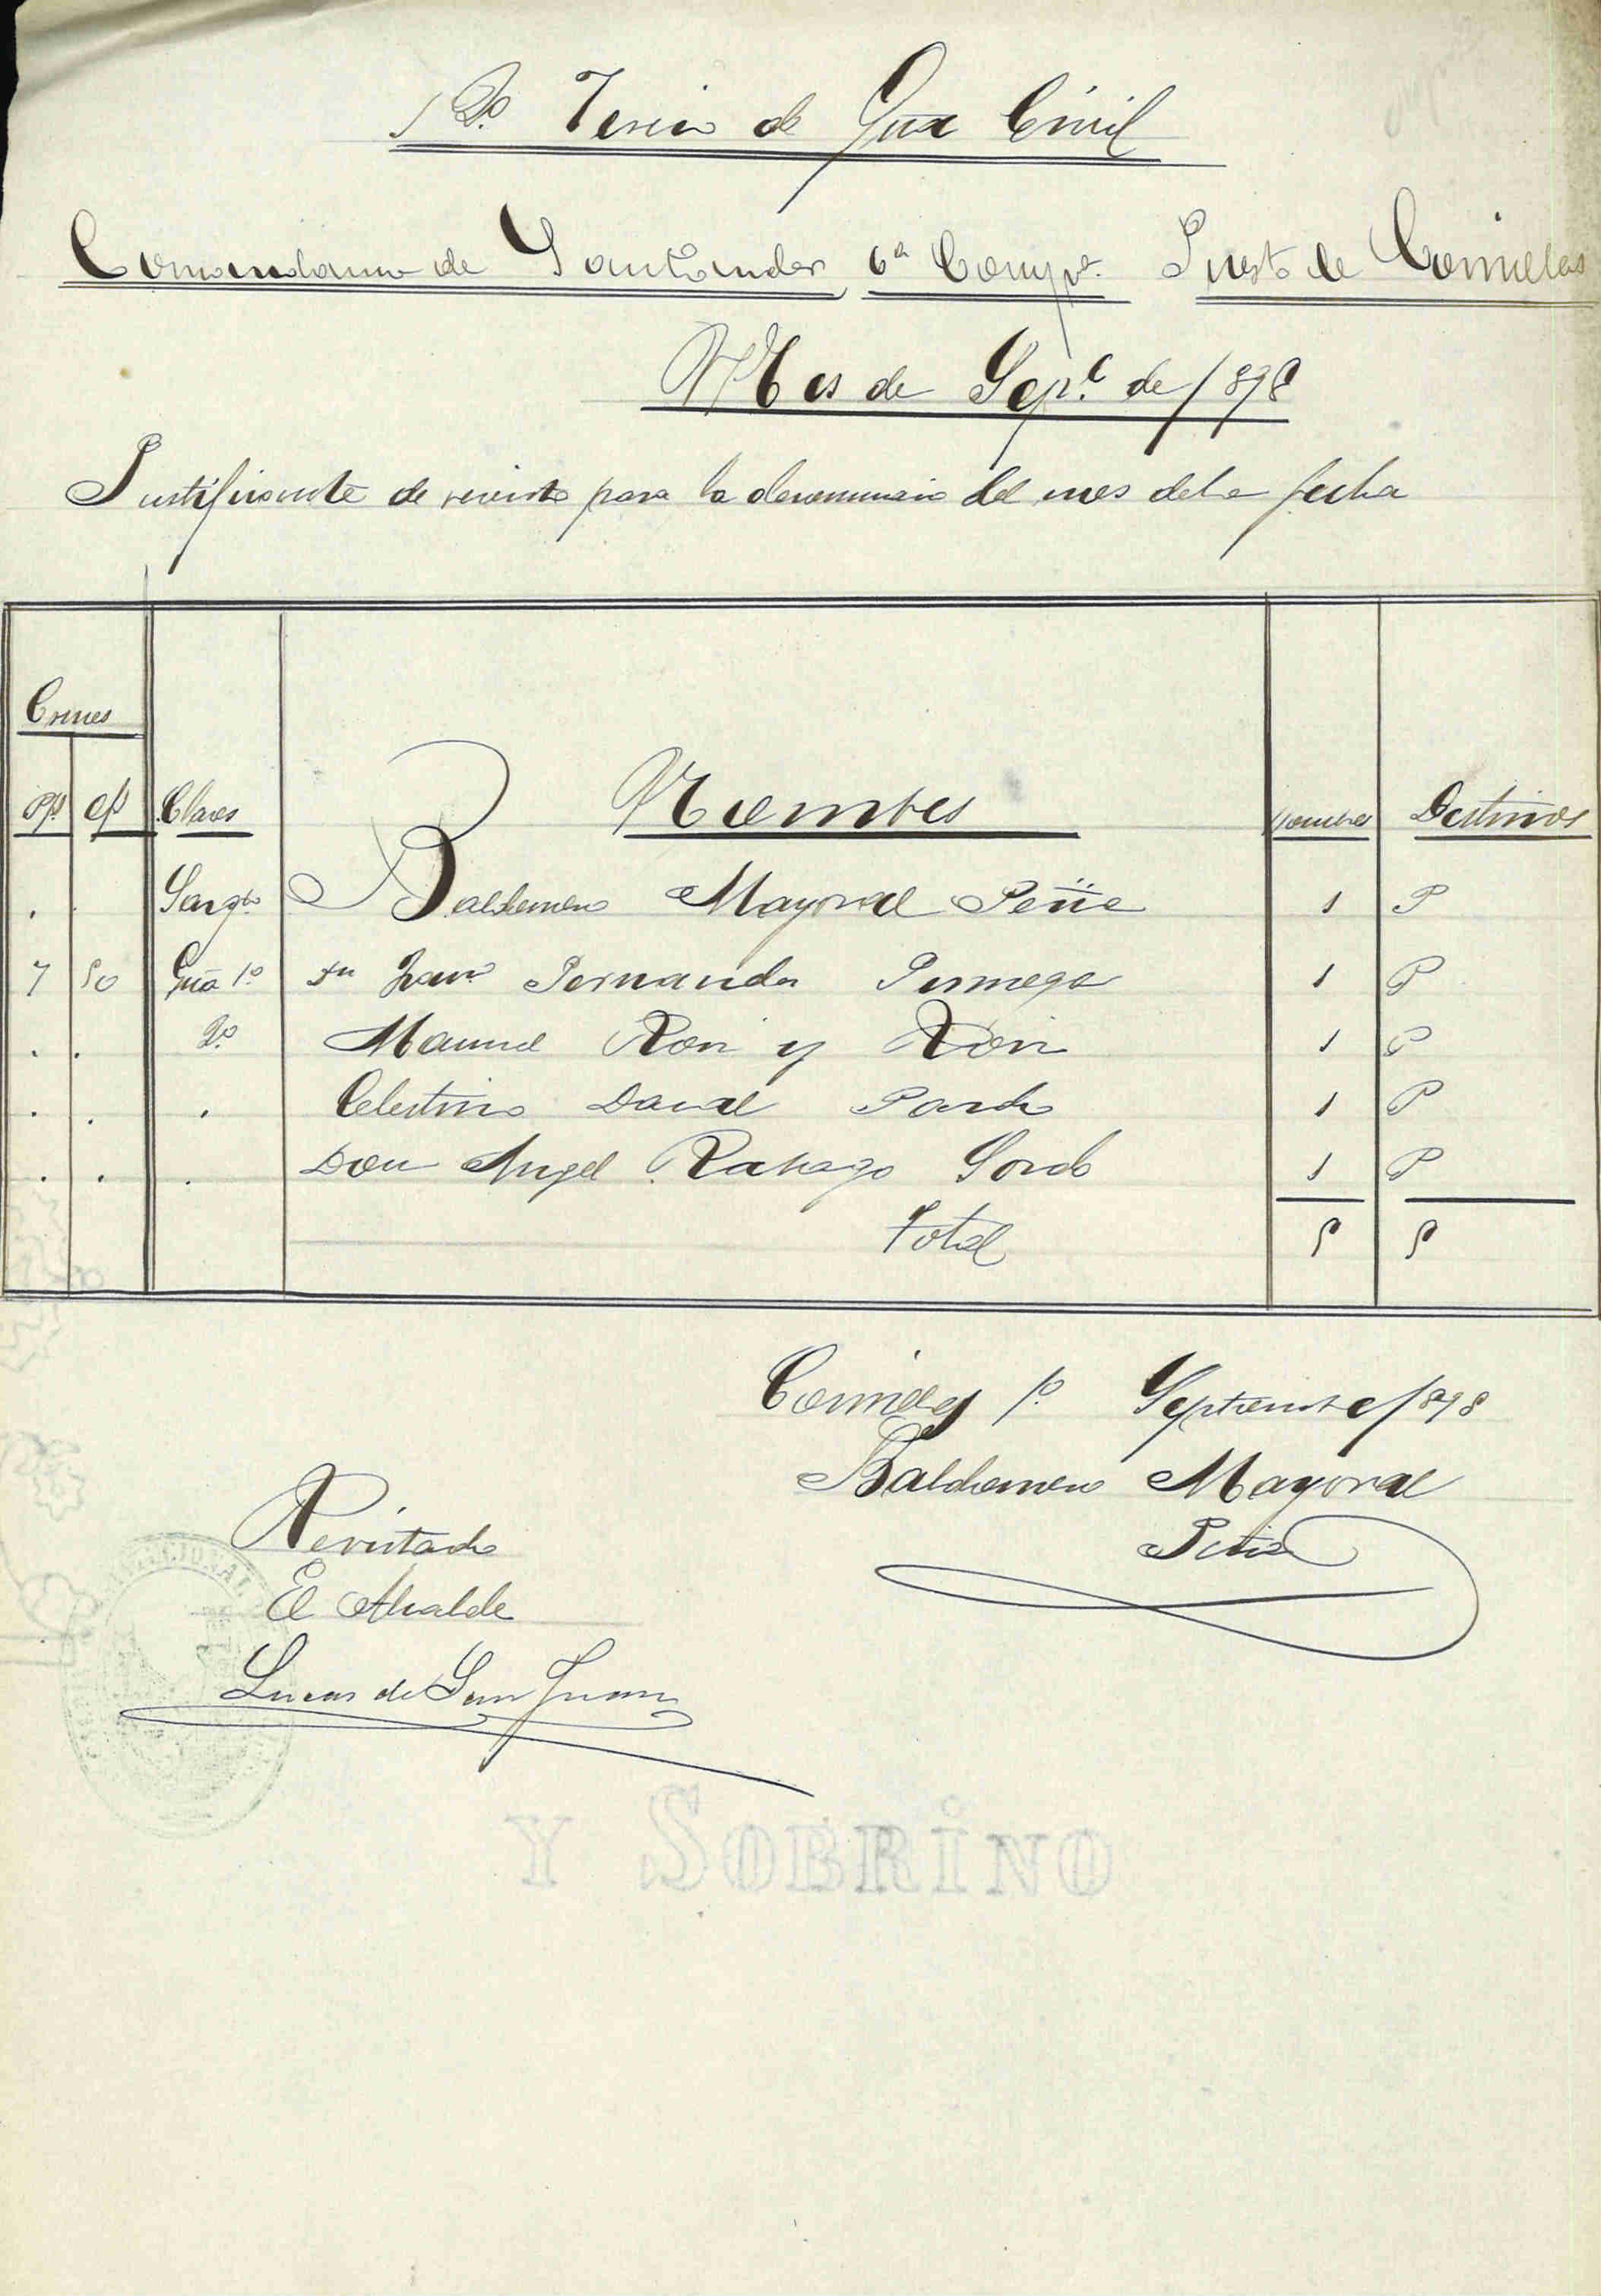 Tercio de Gua Civil
Comandancia de Santander 6ª Compª. Puesto de Comillas
Mes de Sepe. de 1898
Justificante de revista para la del mes de la fecha
Cruces
Pp ep Clases Nombres Hombres Destinos
Sargto Baldomero Mayoral 1 P
7 50 Gua 1º Fernandez 1 P
2º Manuel Ron y Ron 1 P
Celestino Pardo 1 P
Don Angel Rabago Sordo 1 P
Total 5 5
Comillas 1º Septiembre 1898
Baldomero Mayoral
Revistado
El Alcalde
Lucas de San Juan
Y SOBRINO